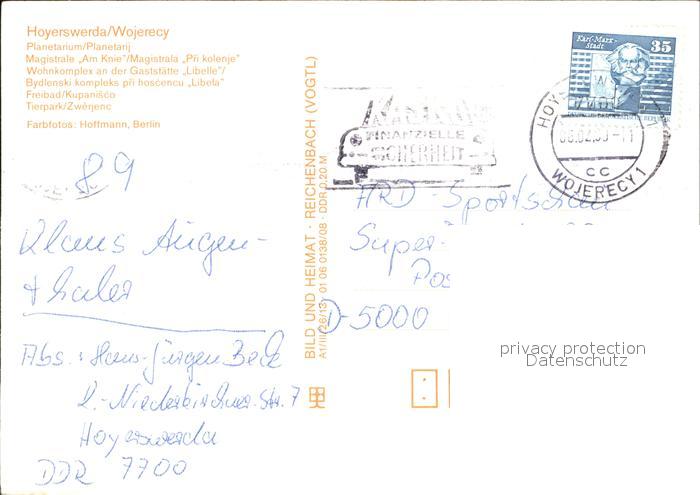 Hoyerswerda/Wojerecy
Planetarium/Planetarij
Magistrale „Am Knie"/Magistrala „Při kolenje"
Wohnkomplex an der Gaststätte „Libelle"/
Bydlenski kompleks při hosćencu „Libela"
Freibad/Kupanišćo
Tierpark/Zwěrjenc
Farbfotos: Hoffmann, Berlin
89
Klaus Augen-
thaler
Abs.: Hans-Jürgen Beck
L.-Niederkirchner-Str. 7
Hoyerswerda
DDR 7700
BILD UND HEIMAT · REICHENBACH (VOGTL)
A1/III/26/13 01 06 0138/08 · DDR 0,20 M
FINANZIELLE
SICHERHEIT
Karl-Marx-
Stadt
35
cc
WOJERECY 1
ARD-Sportschau
Super-
Pos
D-5000
privacy protection
Datenschutz